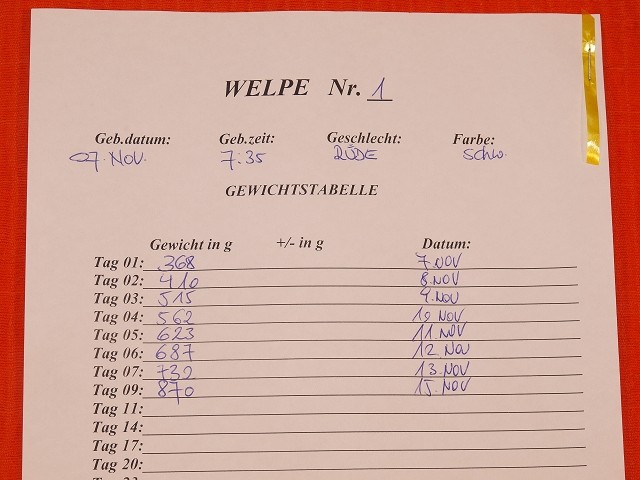 WELPE Nr. 1
Geb.datum: Geb.zeit: Geschlecht: Farbe:
07. NOV. 7:35 RÜDE Schw.
GEWICHTSTABELLE
Gewicht in g +/- in g Datum:
Tag 01: 368 7. NOV
Tag 02: 410 8. NOV
Tag 03: 515 9. NOV
Tag 04: 562 10 NOV
Tag 05: 623 11. NOV
Tag 06: 687 12 NOV
Tag 07: 732 13. NOV
Tag 09: 870 15. NOV
Tag 11:
Tag 14:
Tag 17:
Tag 20: